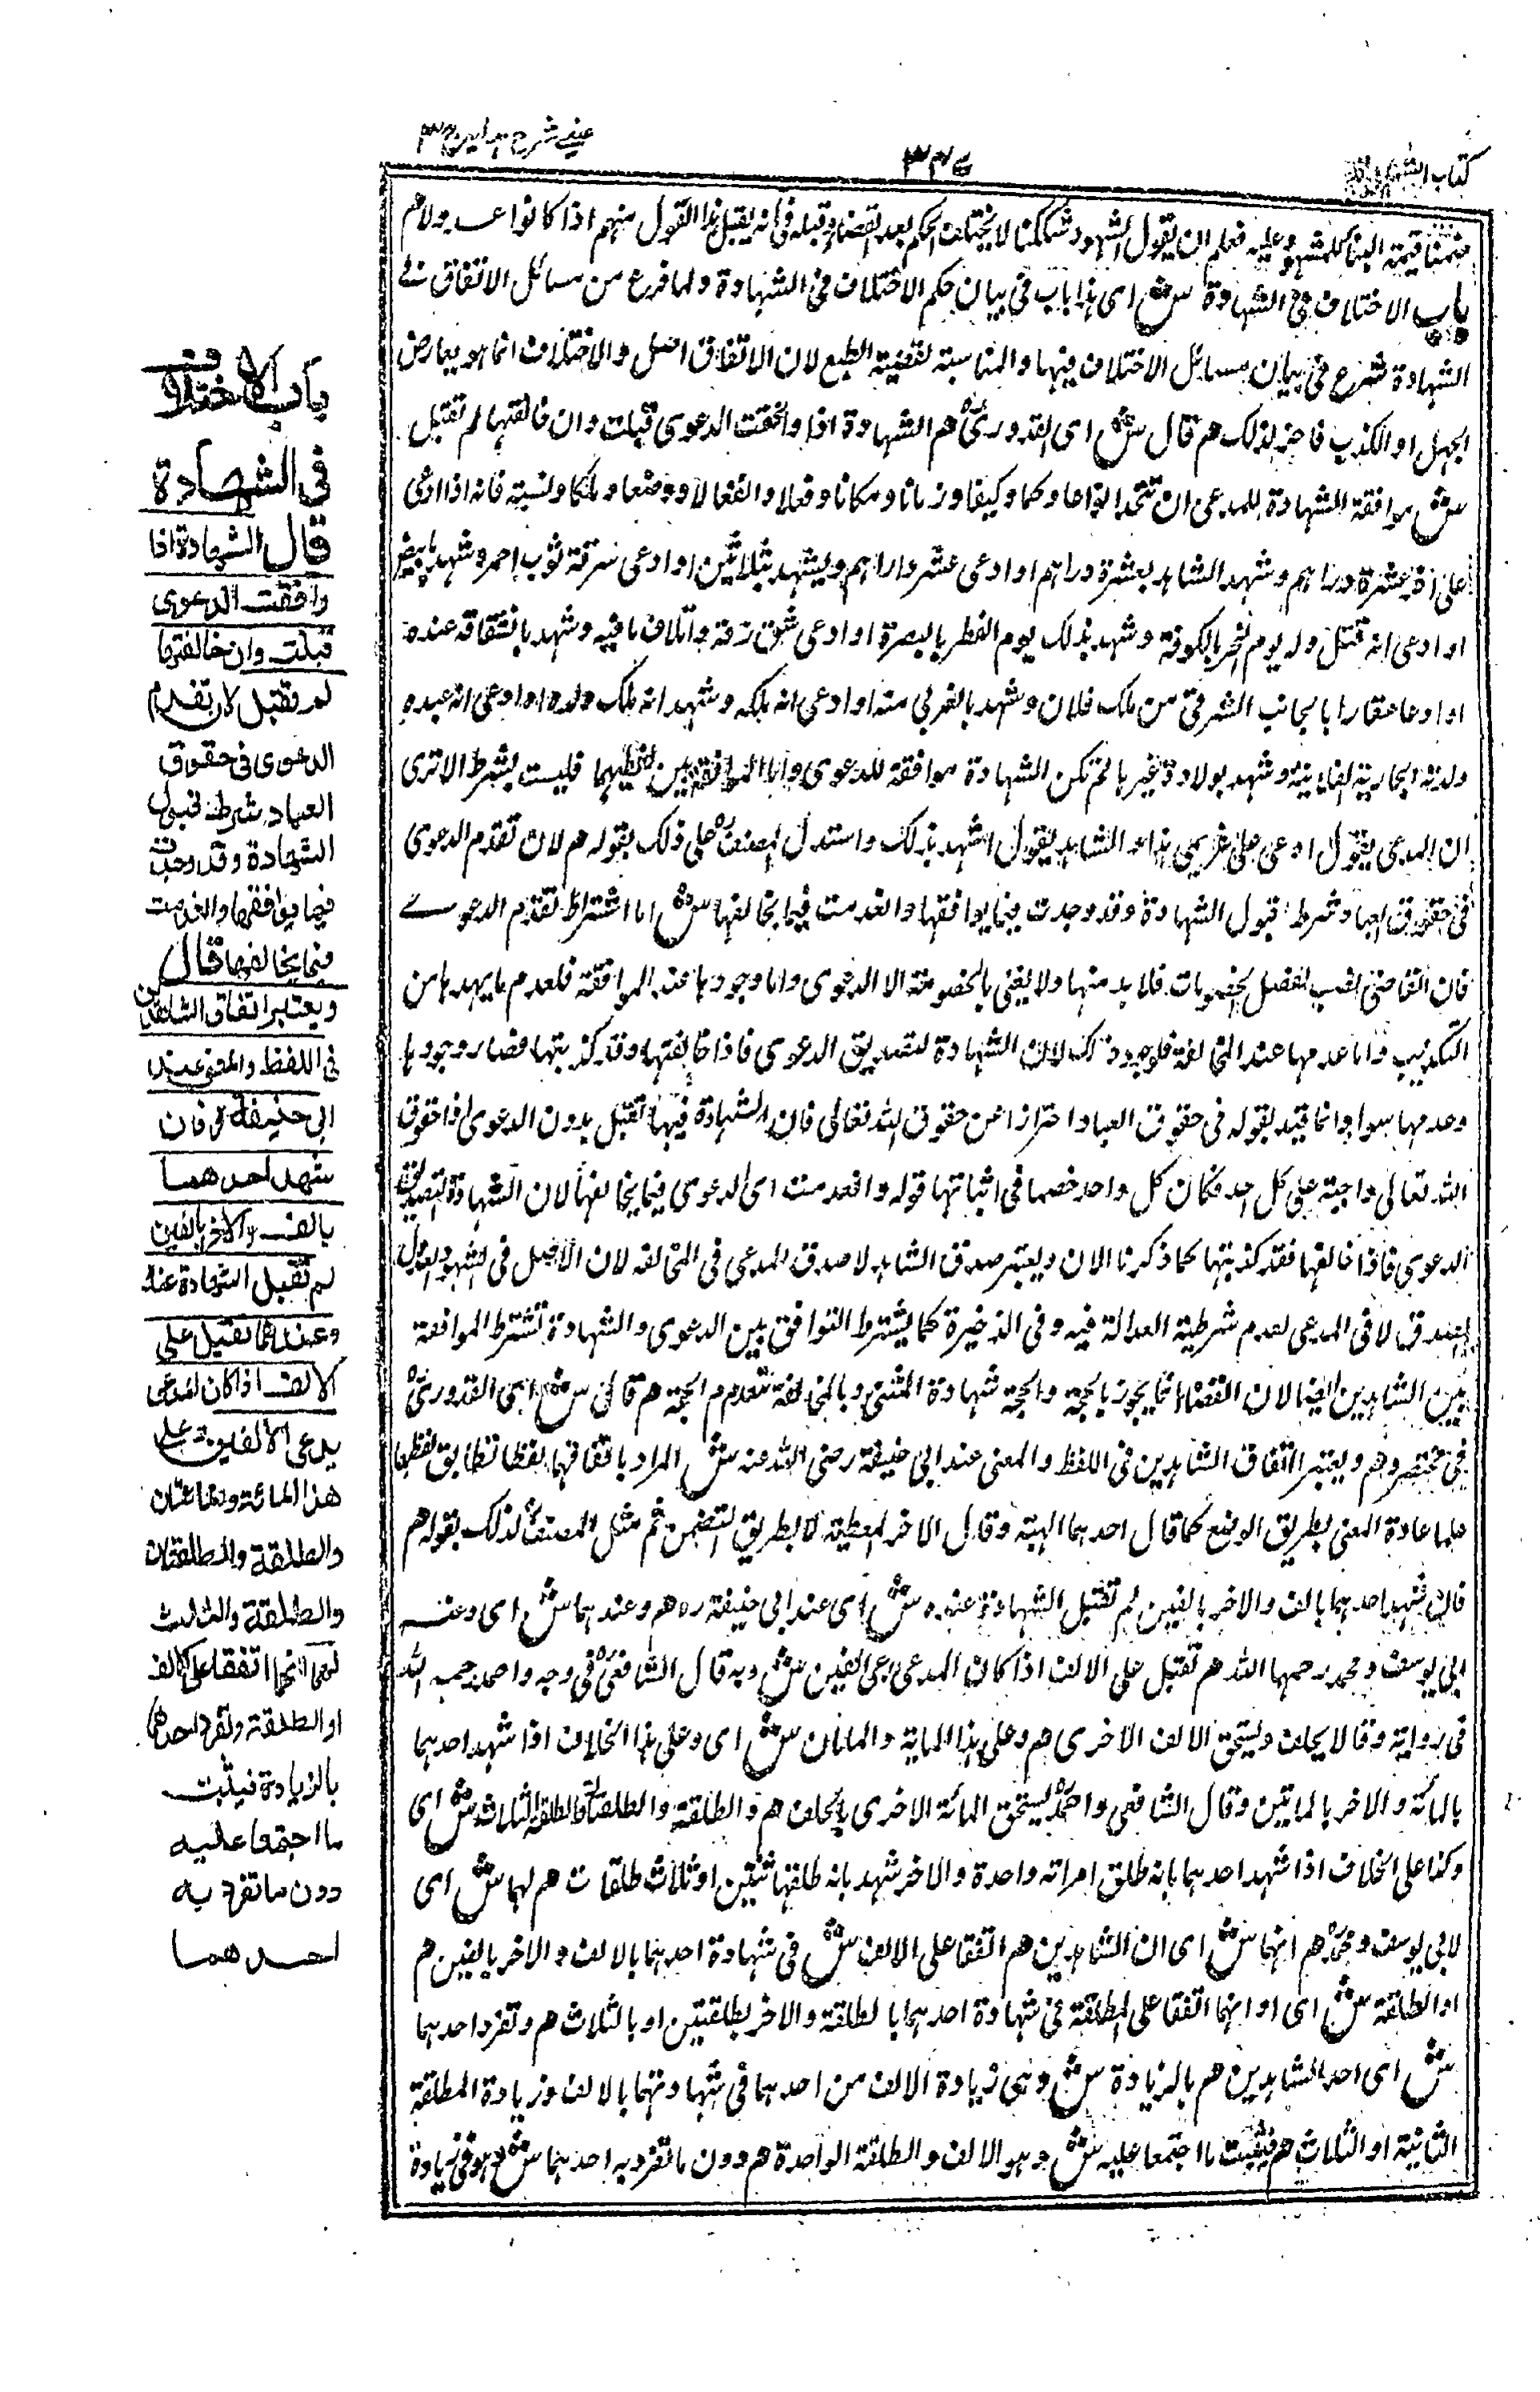 كتاب الشهادات
٣٣٤
عينى شرح هدايه ج٣
ضمنا قيمة البنا للمشهود عليه فعلم ان يقول الشهود شككنا لا يختلف الحكم بعد القضاء وقبله فى انه يقبل هذا القول منهم اذا كانوا عدولا هم
باب الاختلاف فى الشهادة ش اى هذا باب فى بيان حكم الاختلاف فى الشهادة ولما فرع من مسائل الاتفاق فى
الشهادة شرع فى بيان مسائل الاختلاف فيها والمناسبة تقتضيه الطبع لان الاتفاق اصل والاختلاف انما هو بعارض
الجهل او الكذب فاخر لذلك هم قال ش اى القدورى هم الشهادة اذا وافقت الدعوى قبلت وان خالفتها لم تقبل
ش موافقة الشهادة للدعوى ان تتحدا انواعا وكما وكيفا وزمانا ومكانا وفعلا وانفعالا ووضعا وملكا ونسبة فانه اذا ادعى
على اخر عشرة دنانير وشهد الشاهد بعشرة دراهم او ادعى عشر دراهم ويشهد بثلاثين او ادعى سرقة ثوب احمر وشهد بابيض
او ادعى انه قتل ولده يوم النحر بالكوفة وشهد بذلك يوم الفطر بالبصرة او ادعى شق زقه واتلاف ما فيه وشهد بانشقاقه عنده
او ادعا عقارا بالجانب الشرقى من ملك فلان وشهد بالغربى منه او ادعى انه ملكه وشهد انه ملك ولده او ادعى انه عبده
ولدته الجارية الفلانية وشهد بولادة غيرها لم تكن الشهادة موافقة للدعوى واما الموافقة بين لفظيهما فليست بشرط الا ترى
ان المدعى يقول ادعى على غريمى هذا والشاهد يقول اشهد بذلك واستدل المصنف على ذلك بقوله هم لان تقدم الدعوى
فى حقوق العباد شرط قبول الشهادة وقد وجدت فيما يوافقها وانعدمت فيما يخالفها ش اما اشتراط تقدم الدعوى
فان القاضى نصب لفصل الخصومات فلا بد منها ولا يعنى بالخصومة الا الدعوى واما وجودها عند الموافقة فلعدم ما يهدرها من
التكذيب واما عدمها عند المخالفة فلوجود ذلك لان الشهادة لتصديق الدعوى فاذا خالفتها فقد كذبتها فصار وجودها
وعدمها سواء وانما قيد بقوله فى حقوق العباد احترازا عن حقوق الله تعالى فان الشهادة فيها تقبل بدون الدعوى اذ حقوق
الله تعالى واجبة على كل احد فكان كل واحد خصما فى اثباتها قوله وانعدمت اى الدعوى فيما يخالفها لان الشهادة لتصديق
الدعوى فاذا خالفها فقد كذبتها كما ذكرنا الان ويعتبر صدق الشاهد لا صدق المدعى فى المخالفه لان الاصل فى الشهود العدول
الصدق لا فى المدعى لعدم شرطية العدالة فيه وفى الذخيرة كما يشترط التوافق بين الدعوى والشهادة تشترط الموافقة
بين الشاهدين ايضا لان القضاء انما يجوز بالحجة والحجة شهادة المثنى وبالمخالفة تنعدم الحجة هم قال ش اى القدورى
فى مختصره هم ويعتبر اتفاق الشاهدين فى اللفظ والمعنى عند ابى حنيفة رضى الله عنه ش المراد باتفاقهما لفظا تطابق لفظهما
على افادة المعنى بطريق الوضع كما قال احدهما الهبة وقال الاخر العطية لا بطريق التضمن ثم مثل المصنف لذلك بقوله هم
فان شهد احدهما بالف والاخر بالفين لم تقبل الشهادة عنده ش اى عند ابى حنيفة ره هم وعندهما ش اى وعند
ابى يوسف ومحمد رحمهما الله هم تقبل على الالف اذا كان المدعى يدعى الفين ش وبه قال الشافعى فى وجه واحمد رحمه الله
فى رواية وقالا يحلف ويستحق الالف الاخرى هم وعلى هذا المائة والمائتان ش اى وعلى هذا الخلاف اذا شهد احدهما
بالمائة والاخر بالمائتين وقال الشافعى واحمد يستحق المائة الاخرى بالحلف هم والطلقة والطلقتان والطلقة والثلاث ش اى
وكذا على الخلاف اذا شهد احدهما بانه طلق امراته واحدة والاخر شهد بانه طلقها ثنتين او ثلاث طلقات هم لهما ش اى
لابى يوسف ومحمد هم انهما ش اى ان الشاهدين هم اتفقا على الالف ش فى شهادة احدهما بالالف والاخر بالفين هم
او الطلقة ش اى او انهما اتفقا على الطلقة فى شهادة احدهما بالطلقة والاخر بطلقتين او بالثلاث هم وتفرد احدهما
ش اى احد الشاهدين هم بالزيادة ش وهى زيادة الالف من احدهما فى شهادتهما بالالف وزيادة الطلقة
الثانية او الثلاث هم فيثبت ما اجتمعا عليه ش وهو الالف والطلقة الواحدة هم دون ما تفرد به احدهما ش وهو فى زيادة
باب الاختلاف
فى الشهادة
قال الشهادة اذا
وافقت الدعوى
قبلت وان خالفتها
لم تقبل لان تقدم
الدعوى فى حقوق
العباد شرط قبول
الشهادة وقد وجدت
فيما يوافقها وانعدمت
فيما يخالفها قال
ويعتبر اتفاق الشاهدين
فى اللفظ والمعنى عند
ابى حنيفة فان
شهد احدهما
بالف والاخر بالفين
لم تقبل الشهادة عنده
وعندهما تقبل على
الالف اذا كان المدعى
يدعى الالفين وعلى
هذا المائة والمائتان
والطلقة والطلقتان
والطلقة والثلث
لهما انهما اتفقا على الالف
او الطلقة وتفرد احدهما
بالزيادة فيثبت
ما اجتمعا عليه
دون ما تفرد به
احدهما